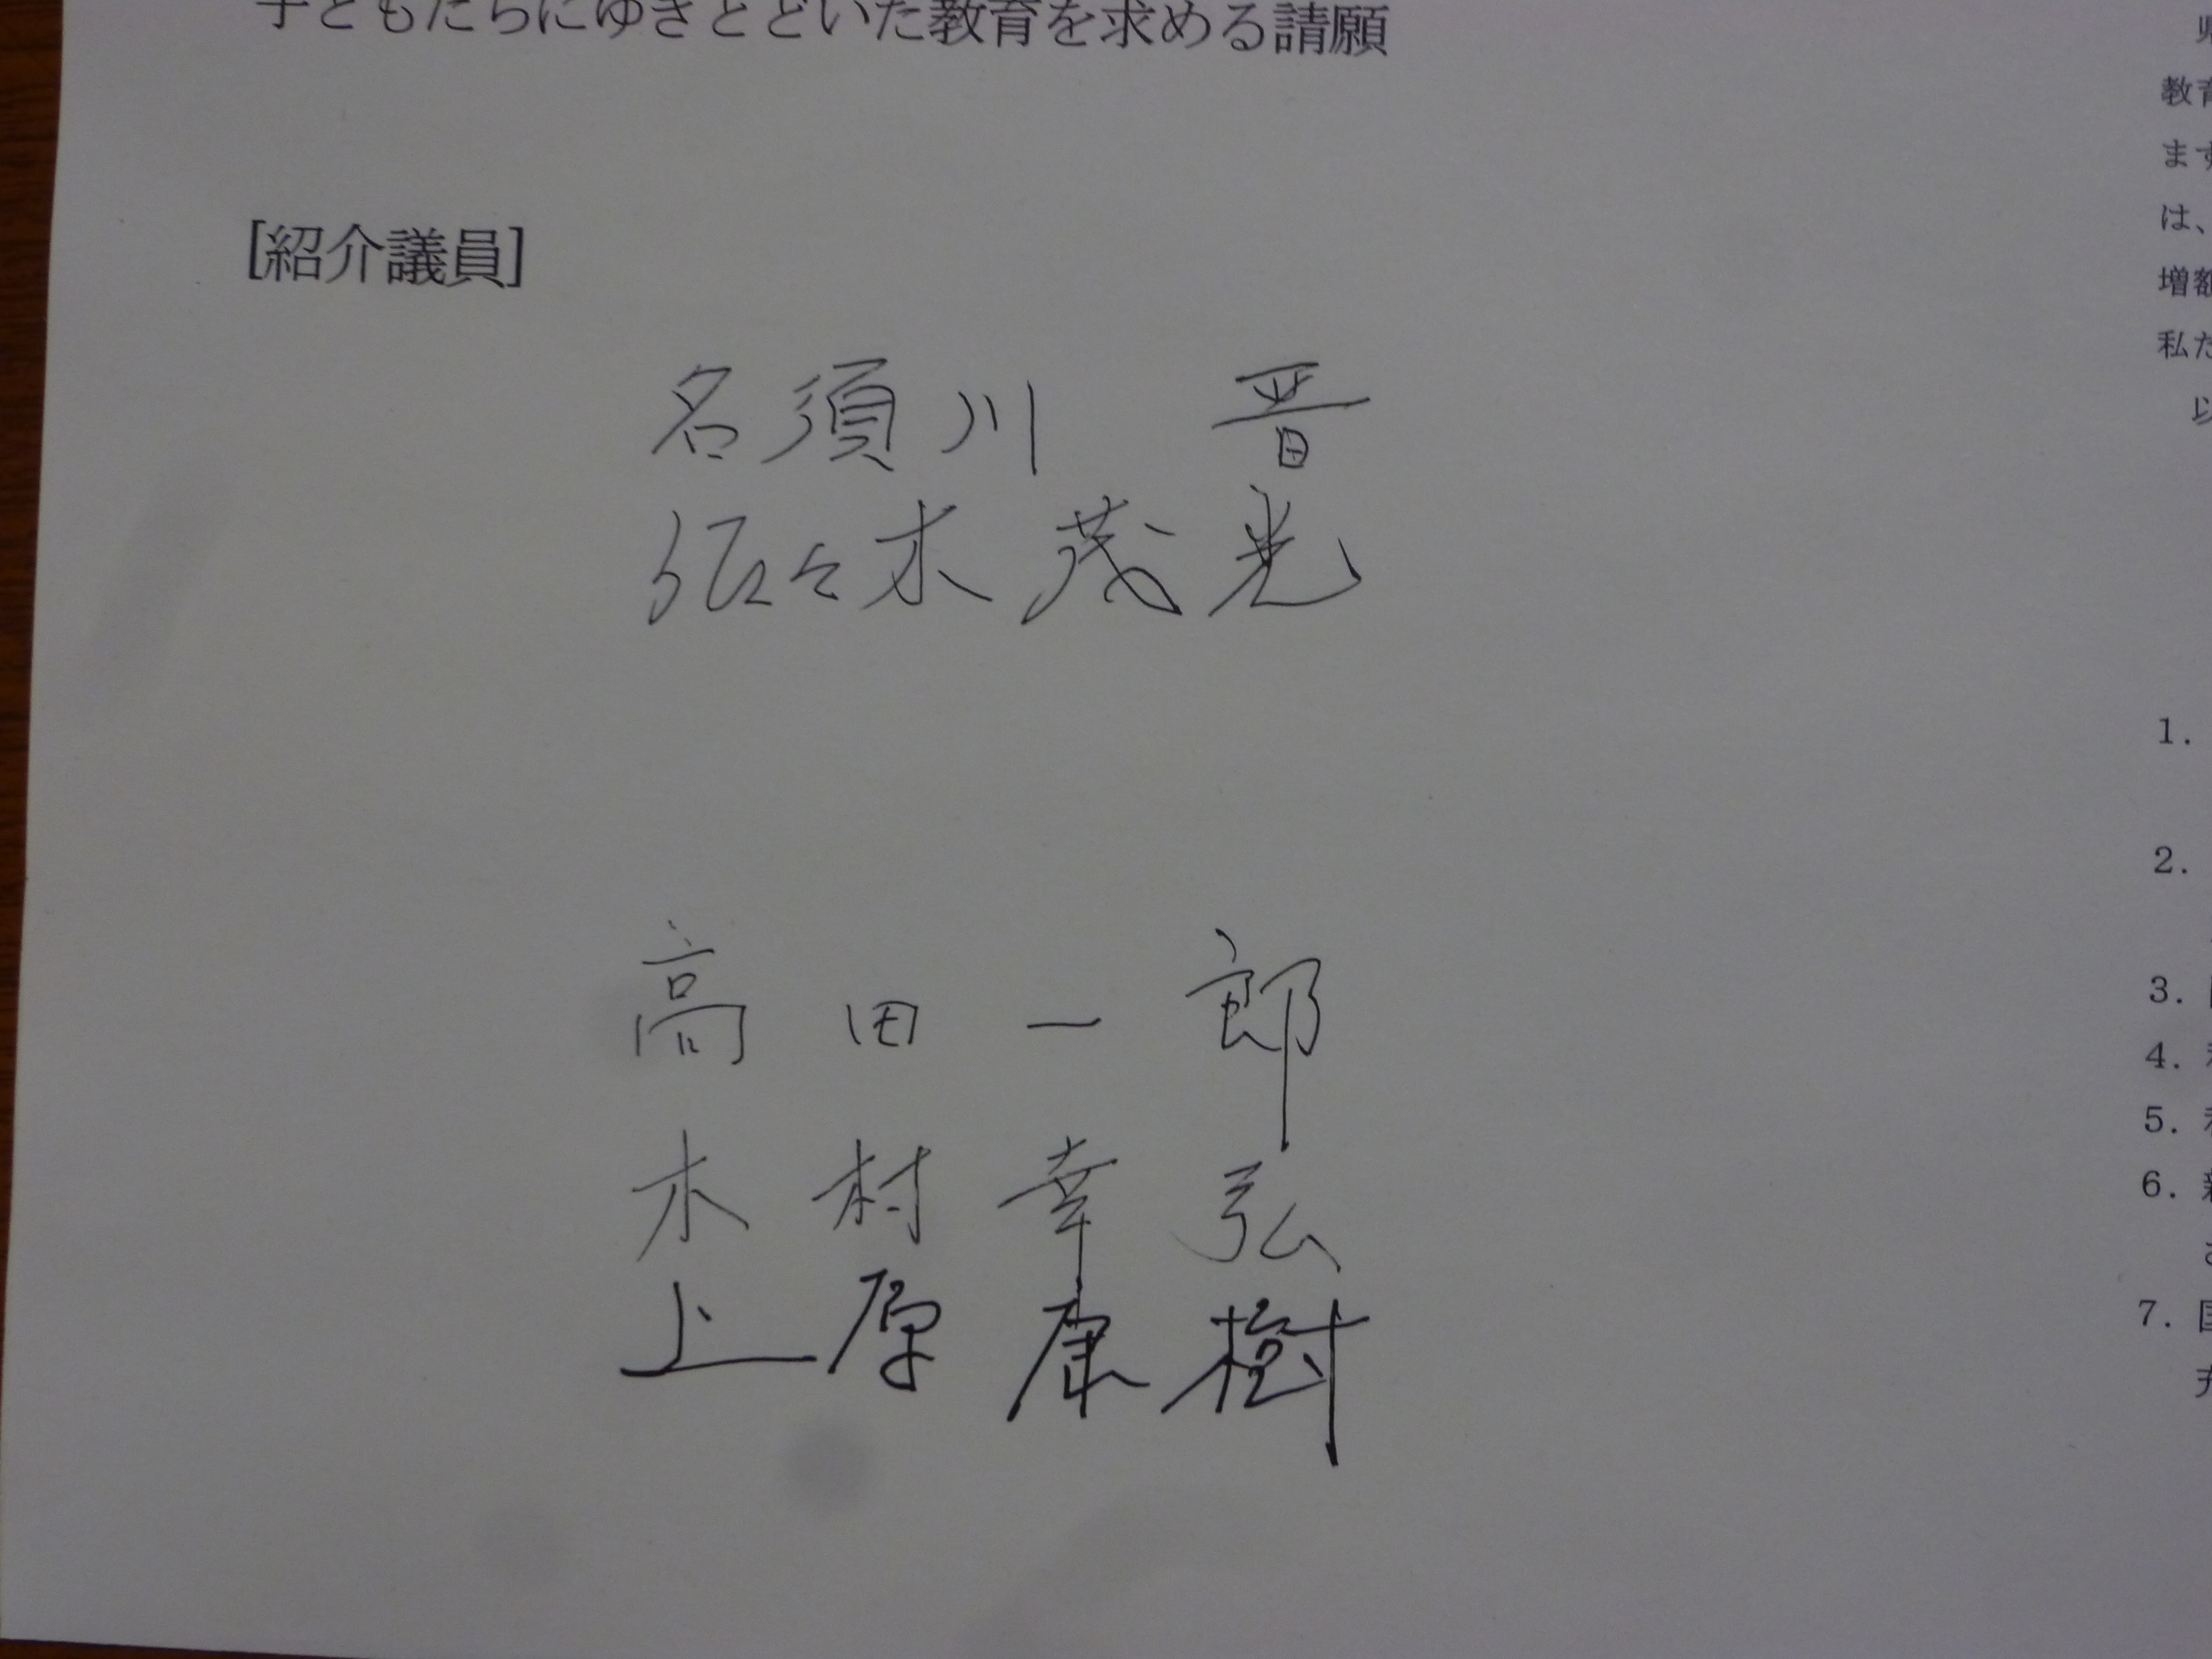 子どもたちにゆきとどいた教育を求める請願
[紹介議員]
名須川 晋
佐々木茂光
高田一郎
木村幸弘
上原康樹
教育
ます
は、
増額
私た
以
1.
2.
3.
4.
5.
6.
7.